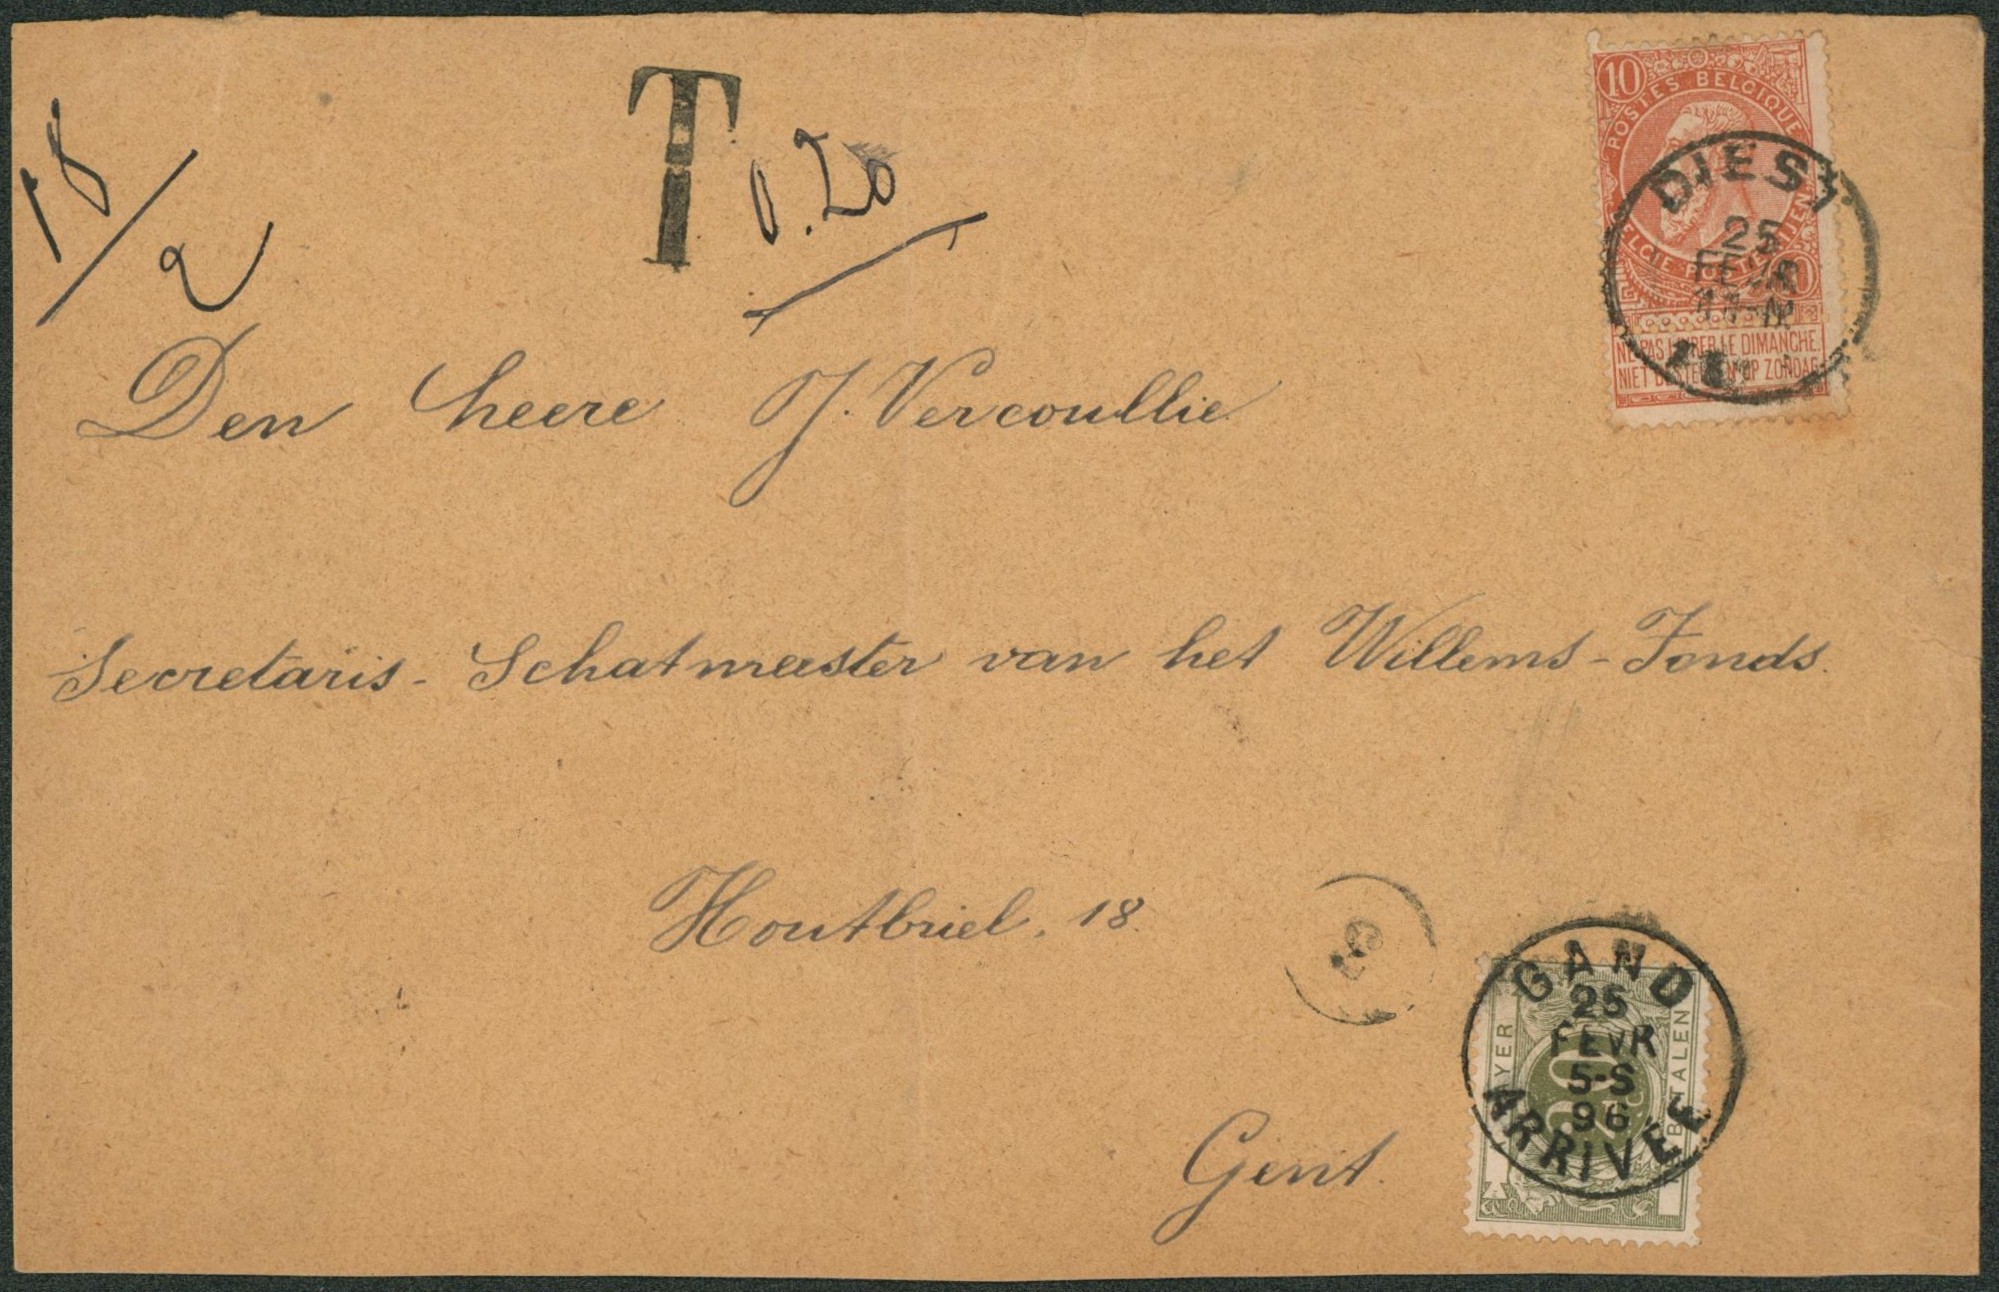 18/2
T 0.20
10
POSTES BELGIQUE
BELGIE POSTERIJEN
10
NE PAS LIVRER LE DIMANCHE.
NIET BESTELLEN OP ZONDAG.
DIEST
25
FEVR
11-M
Den heere J. Vercoullie
Secretaris-Schatmeester van het Willems-Fonds.
Houtbriel, 18.
Gent.
GAND
25
FEVR
5-S
96
ARRIVÉE
PAYER
20
BETALEN